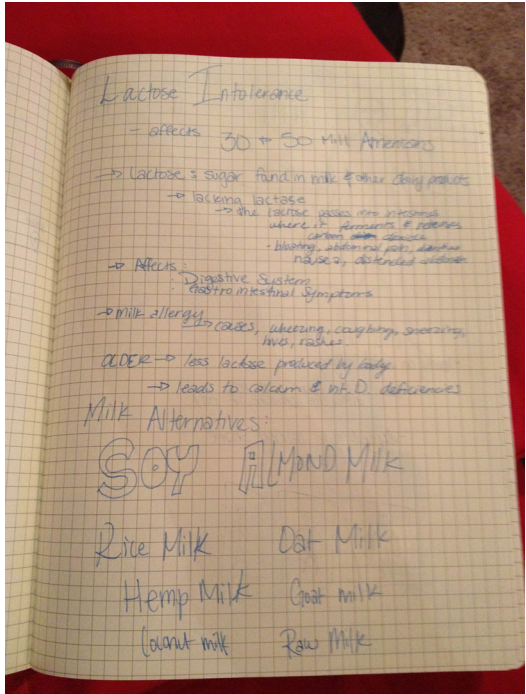 Lactose Intolerance
- affects 30 + 50 Mill Americans
→ Lactose = sugar found in milk & other dairy products
→ lacking lactase
→ the lactose passes into intestines
where it ferments & releases
carbon dioxide
• bloating, abdominal pain,
nausea, distended abdomen
→ Affects:
• Digestive System
• Gastrointestinal Symptoms
→ Milk allergy
→ causes, wheezing, coughing, sneezing,
hives, rashes
OLDER → less lactose produced by body
→ leads to calcium & vit. D. deficiencies
Milk Alternatives:
SOY ALMOND Milk
Rice Milk Oat Milk
Hemp Milk Goat milk
Coconut milk Raw Milk